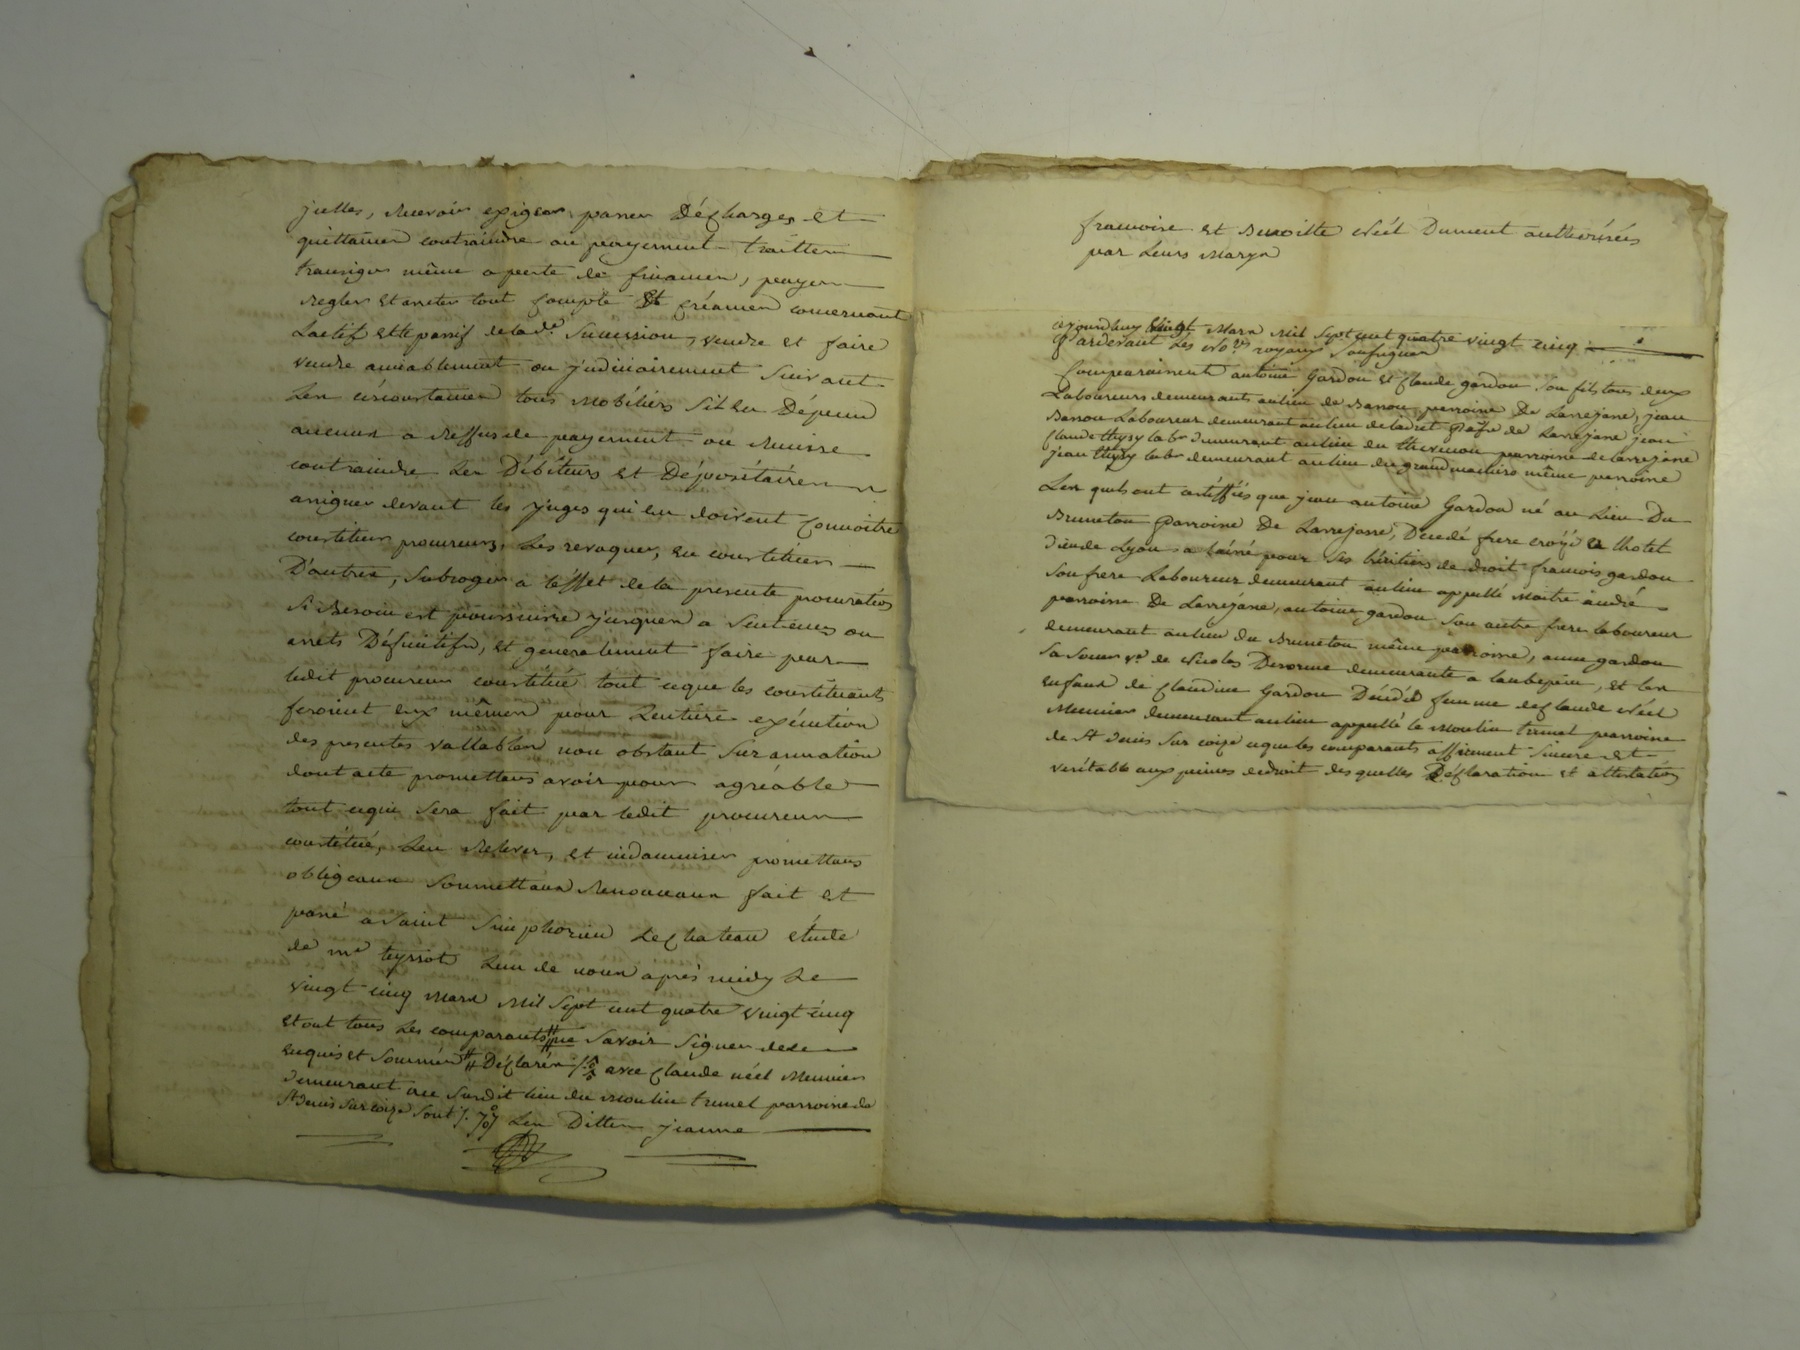 juttes, Recevoir exiger passer Décharges et
quittances contraindre au payement traitter
transiger même a perte de finances, payer
Regler et arreter tout Compte et Créances concernant
Lactif et le passif de lad.e Succession, vendre et faire
vendre amiablement ou judiciairement Suivant
Les circonstances tous Mobiliers Sil en Dépend
aucuns a Reffus de payement ou Remise
contraindre Les Débiteurs et Dépositaires
assigner devant les Juges qui en doivent Connoitre
constituer procureurs, Les revoquer, en constituer
D'autres, Subroger a l'éffet de la presente procuration
Si Besoin est poursuivre jusques a Sentences ou
arrets Définitifs, et generalement faire pour
ledit procureur constitué tout ce que les constituants
feroient eux mêmes pour Lentiere exécution
des presentes vallables non obstant Surannation
dont acte promettans avoir pour agréable
tout ce qui Sera fait par ledit procureur
constitué, Len Relever, et indamniser promettans
obligeans Soumettans Renonceans fait et
passé a Saint Simphorien Le Chateau étude
de m.e teyssot Lun de nous après midy Le
vingt cinq Mars Mil Sept cent quatre vingt cinq
et ont tous Les comparants # ne Savoir Signer de ce
enquis et Sommés # Déclarés avec Claude néel Meunier
demeurant au Susdit lieu du Moulin trunel parroisse de
St denis Sur coize Sont Les Dittes jeanne
francoise et Benoitte Néel Dument authorisées
par Leurs Marys
cejourdhuy vingt Mars Mil Sept cent quatre vingt cinq
Pardevant Les No.res royaux Soussignés
Comparaissent antoine Gardon et Claude gardon Son fils tous deux
Laboureurs demeurants au lieu de Banou, parroisse De Larrejasse, jean
Banou Laboureur demeurant au lieu de ladret Par.sse de Larrejasse jean
Claude thizy lab.r demeurant au lieu du thevenon parroisse de larrejasse
jean thizy lab.r demeurant au lieu du grand même parroisse
Les quels ont certiffiés que jean antoine Gardon né au Lieu Du
Bruneton Parroisse De Larrejasse, Decedé frere croizé a lhotel
dieu de Lyon a laissé pour Ses héritiers de droit francois gardon
Son frere Laboureur demeurant au lieu appellé Maitre andré
parroisse De Larrejasse, antoine gardon Son autre frere laboureur
demeurant au lieu du Bruneton même parroisse, anne gardon
Sa Soeur v.e de Nicolas Desorme demeurante a laubepin, et les
enfans de Claudine Gardon Décédée femme de Claude Néel
Meunier demeurant au lieu appellé le Moulin trunel parroisse
de St denis Sur coize ce que les comparants affirment Sincere et
veritable aux peines de droit des quelles Déclaration et attestation